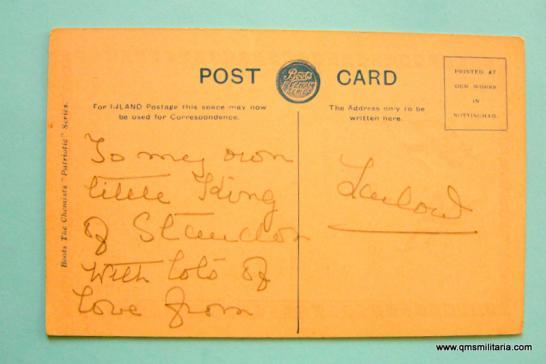 POST CARD
Boots
PRINTED AT
OUR WORKS
IN
NOTTINGHAM.
For INLAND Postage this space may now
be used for Correspondence.
The Address only to be
written here.
Boots The Chemists "Patriotic" Series.
To my own
little King
of
with lots of
love from
www.qmsmilitaria.com